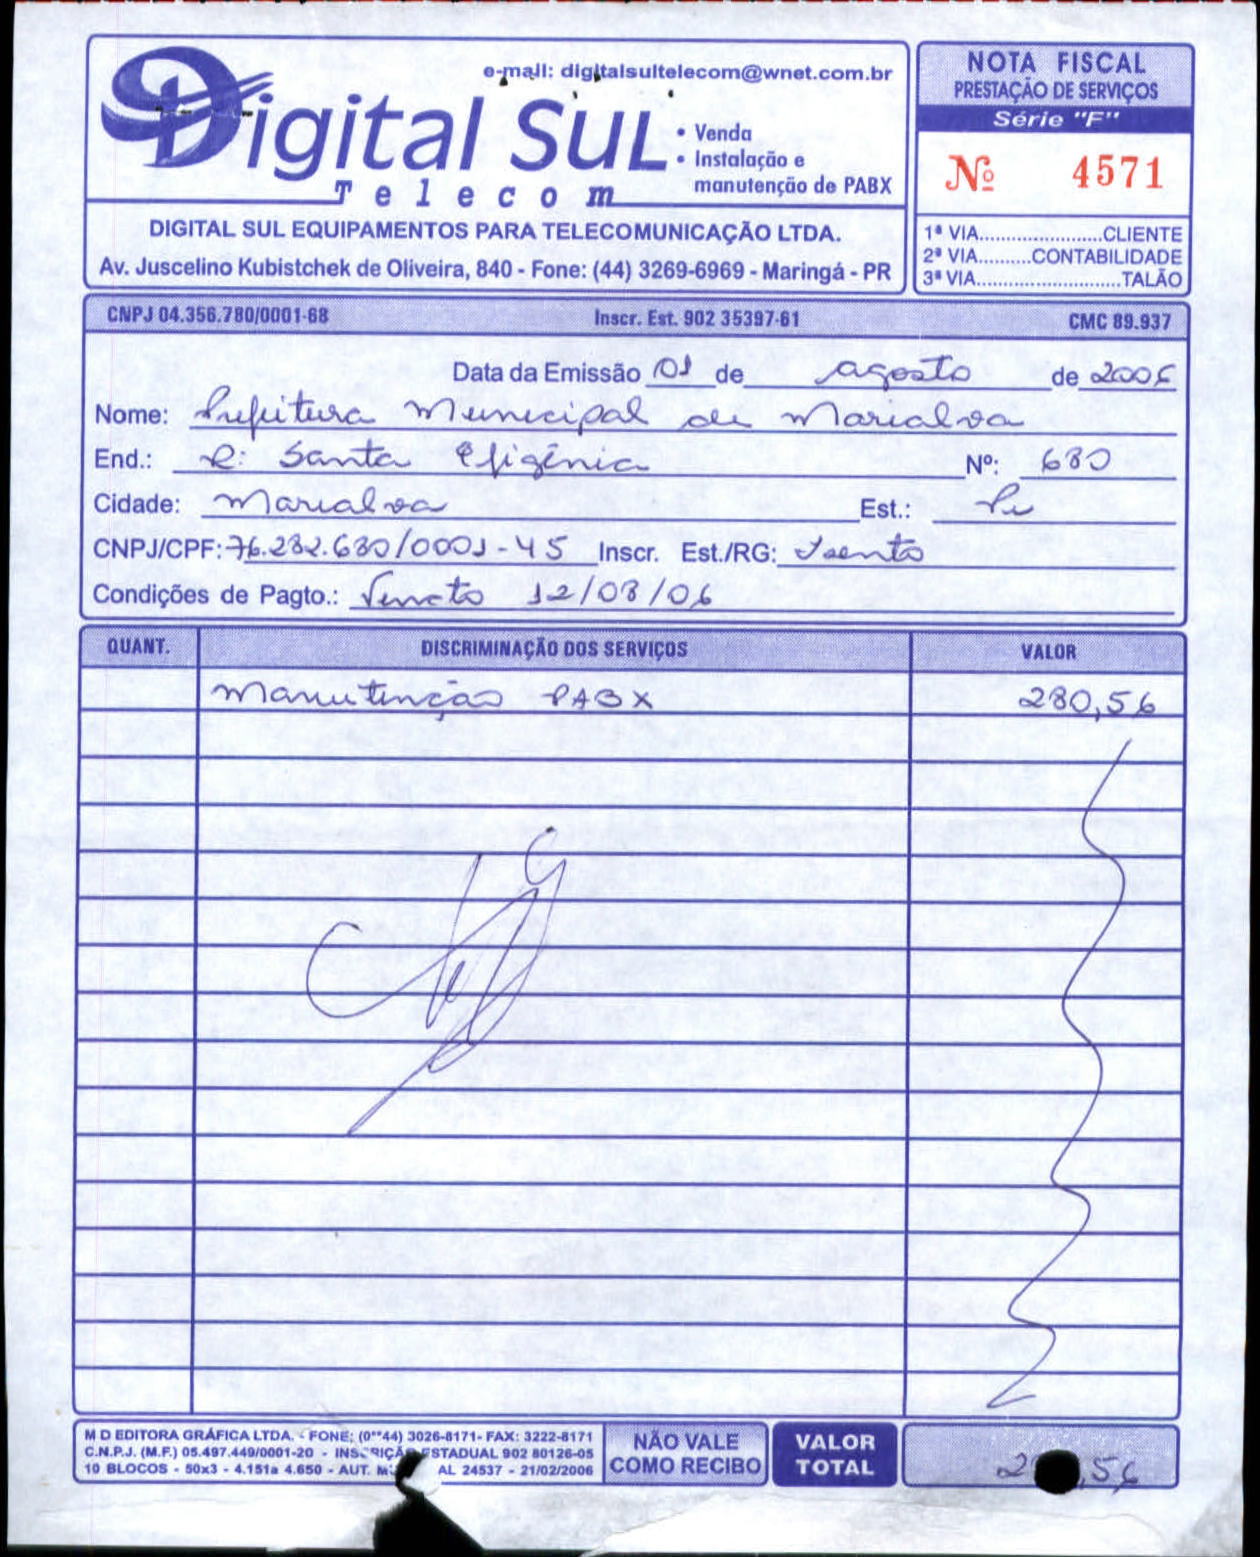 e-mail: digitalsultelecom@wnet.com.br
Digital Sul
Telecom
• Venda
• Instalação e
manutenção de PABX
DIGITAL SUL EQUIPAMENTOS PARA TELECOMUNICAÇÃO LTDA.
Av. Juscelino Kubistchek de Oliveira, 840 - Fone: (44) 3269-6969 - Maringá - PR
NOTA FISCAL
PRESTAÇÃO DE SERVIÇOS
Série "F"
Nº 4571
1ª VIA......................CLIENTE
2ª VIA.........CONTABILIDADE
3ª VIA..........................TALÃO
CNPJ 04.356.780/0001-68 Inscr. Est. 902 35397-61 CMC 89.937
Data da Emissão 01 de agosto de 2006
Nome: Prefeitura Municipal de Marialva
End.: R: Santa Efigênia Nº: 680
Cidade: Marialva Est.: Pr
CNPJ/CPF: 76.282.680/0001-45 Inscr. Est./RG: Isento
Condições de Pagto.: Vencto 12/08/06
QUANT. DISCRIMINAÇÃO DOS SERVIÇOS VALOR
Manutenção PABX 280,56
M D EDITORA GRÁFICA LTDA. - FONE: (0**44) 3026-8171- FAX: 3222-8171
C.N.P.J. (M.F.) 05.497.449/0001-20 - INSCRIÇÃO ESTADUAL 902 80126-05
10 BLOCOS - 50x3 - 4.151a 4.650 - AUT. AL 24537 - 21/02/2006
NÃO VALE
COMO RECIBO
VALOR
TOTAL
2 ,56